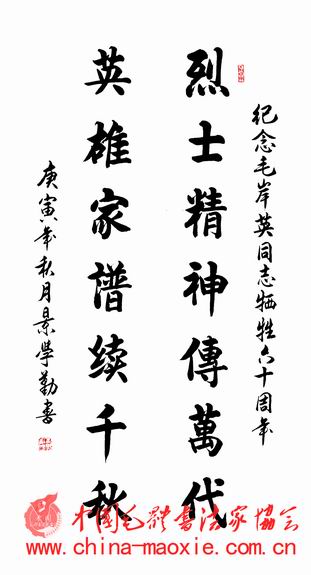 纪念毛岸英同志牺牲六十周年
烈士精神傳萬代
英雄家譜续千秋
庚寅年秋月景學勤書
中国毛体書法家協会
www.china-maoxie.com.cn